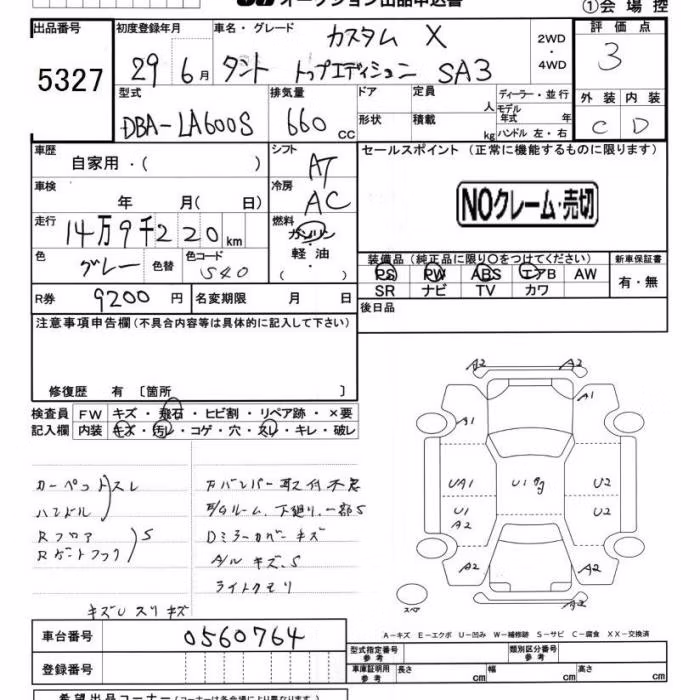 オークション出品申込書
①会場控
出品番号 初度登録年月 車名・グレード 評価点
カスタム X
2WD・4WD
5327 29 6月 タント トップエディション SA3 3
型式 排気量 ドア 定員 人 ディーラー・並行 外装 内装
DBA-LA600S 660 cc 形状 積載 kg モデル年式 年 ハンドル 左・右 C D
車歴 シフト セールスポイント (正常に機能するものに限ります)
自家用・( ) AT
車検 冷房 NOクレーム・売切
年 月( 日) AC
走行 燃料
14万9千220km ガソリン
色 色替 色コード 軽油 装備品(純正品に限り○をつけてください) 新車保証書
グレー S40 ・( ) PS PW ABS エアB AW 有・無
R券 9200円 名変期限 月 日 SR ナビ TV カワ
注意事項申告欄(不具合内容等は具体的に記入して下さい) 後日品
修復歴 有〔箇所 〕
検査員 FW キズ・飛石・ヒビ割・リペア跡・×要
記入欄 内装 キズ・汚レ・コゲ・穴・スレ・キレ・破レ
A2 A2
A1 A1
UA1 U1 U2
U1 U2
A2
A2 A2
A2
スペア
カーペット スレ
ハンドル
Rフロア S
Rゲートフック
キズU スリキズ
Fバンパー取付不良
E/Gルーム、下廻り、一部S
Dミラーカバーキズ
A/Wキズ、S
ライトクモリ
A-キズ E-エクボ U-凹み W-補修跡 S-サビ C-腐食 XX-交換済
車台番号 0560764 型式指定番号 参考 類別区分番号 参考
登録番号 車庫証明用 参考 長さ cm 幅 cm 高さ cm
希望出品コーナー(コーナーは各会場により異なります)